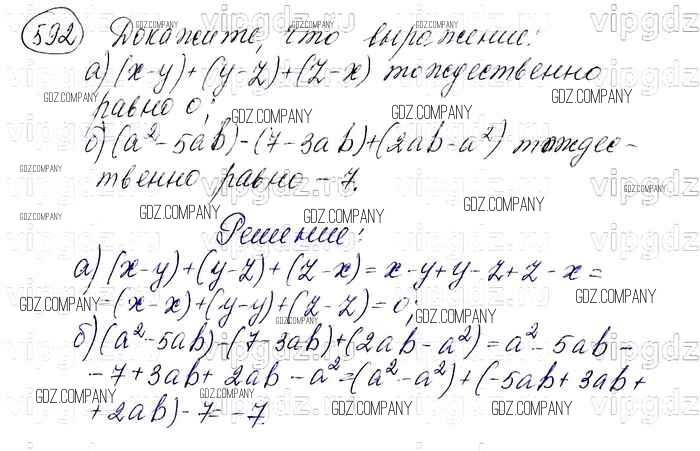 592 Докажите, что выражение:
а) (x-y)+(y-z)+(z-x) тождественно
равно 0;
б) (a²-5ab)-(7-3ab)+(2ab-a²) тождес-
твенно равно -7.
Решение:
а) (x-y)+(y-z)+(z-x)=x-y+y-z+z-x=
=(x-x)+(y-y)+(z-z)=0;
б) (a²-5ab)-(7-3ab)+(2ab-a²)=a²-5ab-
-7+3ab+2ab-a²=(a²-a²)+(-5ab+3ab+
+2ab)-7=-7.
GDZ.COMPANY
vipgdz.ru